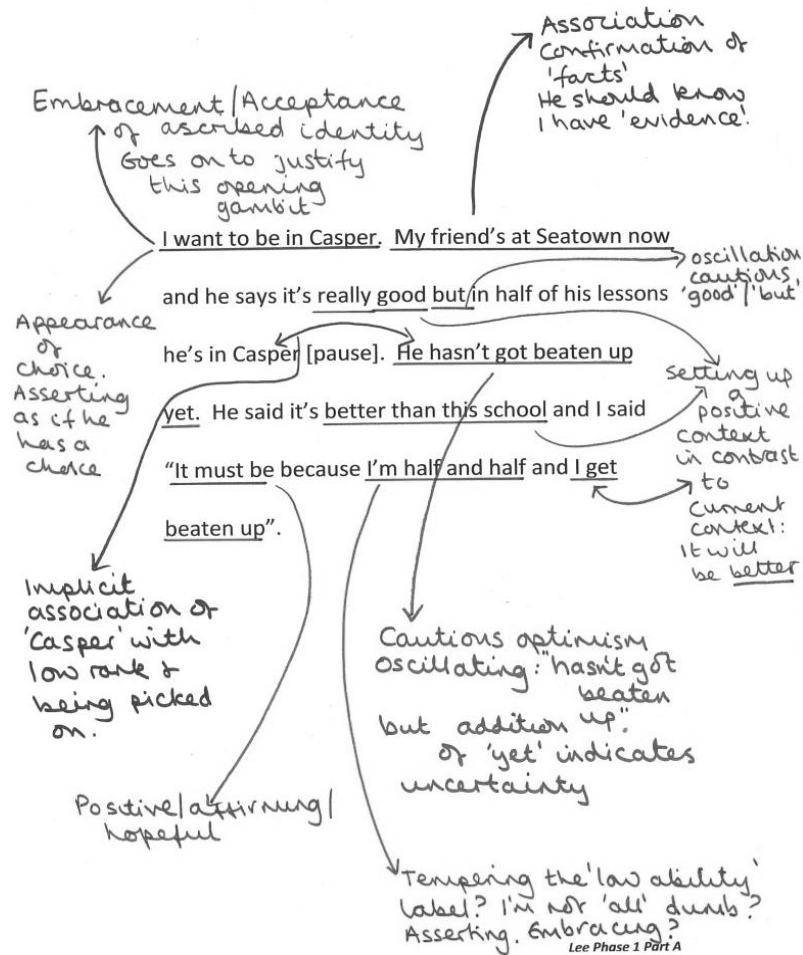 Association
Confirmation of
'facts'
He should know
I have 'evidence'.
Embracement/Acceptance
of ascribed identity
Goes on to justify
this opening
gambit
I want to be in Casper. My friend's at Seatown now
and he says it's really good but in half of his lessons
he's in Casper [pause]. He hasn't got beaten up
yet. He said it's better than this school and I said
“It must be because I'm half and half and I get
beaten up”.
oscillation
cautious
'good'/'but'
Appearance
of
choice.
Asserting
as if he
has a
choice
setting up
a
positive
context
in contrast
to
current
context:
It will
be better
Implicit
association of
'Casper' with
low rank &
being picked
on.
Cautious optimism
oscillating: "hasn't got
beaten
up".
but addition
of 'yet' indicates
uncertainty
Positive/affirming/
hopeful
Tempering the 'low ability'
label? I'm not 'all' dumb?
Asserting. Embracing?
Lee Phase 1 Part A